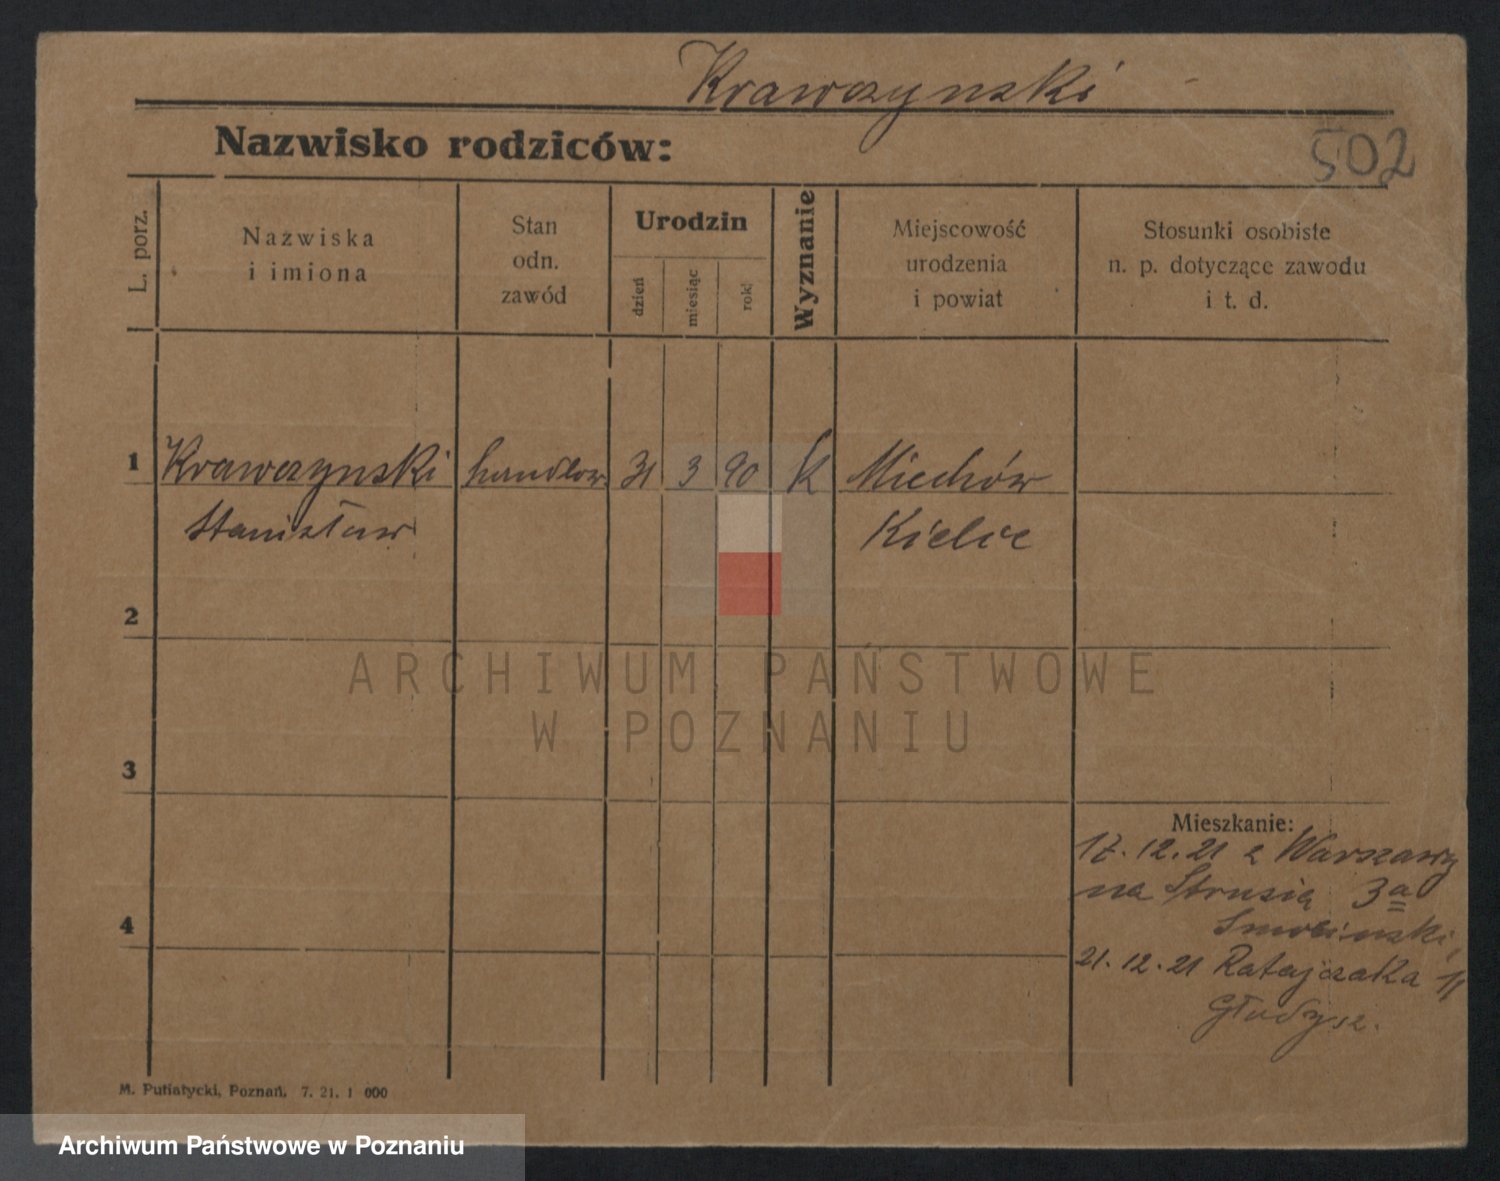 Krawczynski
Nazwisko rodziców:
502
L. porz.
Nazwiska
i imiona
Stan
odn.
zawód
Urodzin
dzień
miesiąc
rok
Wyznanie
Miejscowość
urodzenia
i powiat
Stosunki osobiste
n. p. dotyczące zawodu
i t. d.
1 Krawczynski handlow. 31 3 90 K Miechów
Stanisław Kielce
2
ARCHIWUM PAŃSTWOWE
W POZNANIU
3
Mieszkanie:
17.12.21 z Warszawy
na Strusia 3a
4
21.12.21 Ratajczaka
M. Putiatycki, Poznań. 7. 21. 1 000
Archiwum Państwowe w Poznaniu